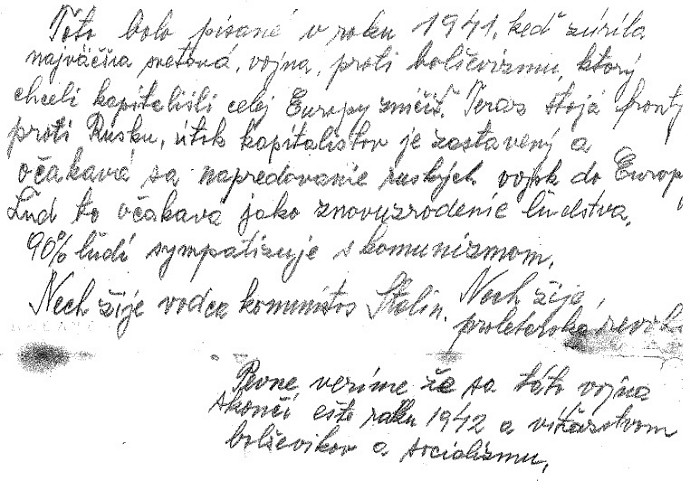 Toto bolo písané v roku 1941, keď zúrila
najväčšia svetová, vojna, proti bolševizmu, ktorý
chceli kapitalisti celej Europy zničiť. Teraz stojá fronty
proti Rusku, útok kapitalistov je zastavený a
očakavá sa napredovanie ruských vojsk do Europy
Ľud to očakavá jako znovuzrodenie ľudstva.
90% ľudí sympatizuje s komunizmom.
Nech žije vodca komunistov Stalin. Nech žije,
proletárska
Pevne veríme že sa táto vojna
skončí ešte roku 1942 a víťazstvom
bolševikov a socializmu.